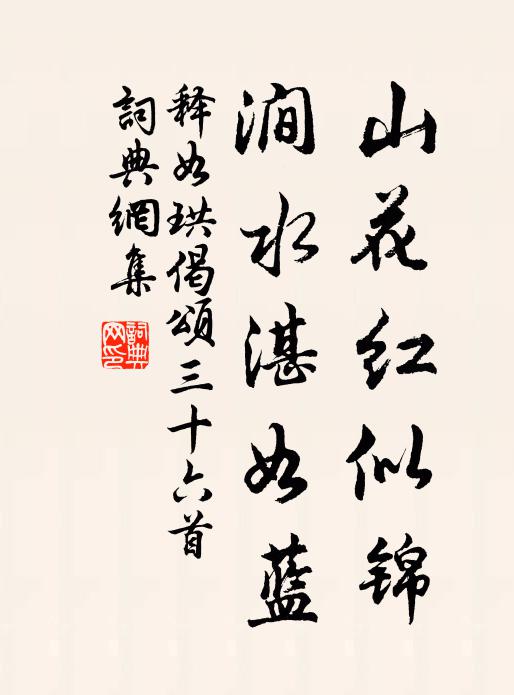 山花红似锦
涧水湛如蓝
释如珙偈颂三十六首
詞典網集
詞典网印